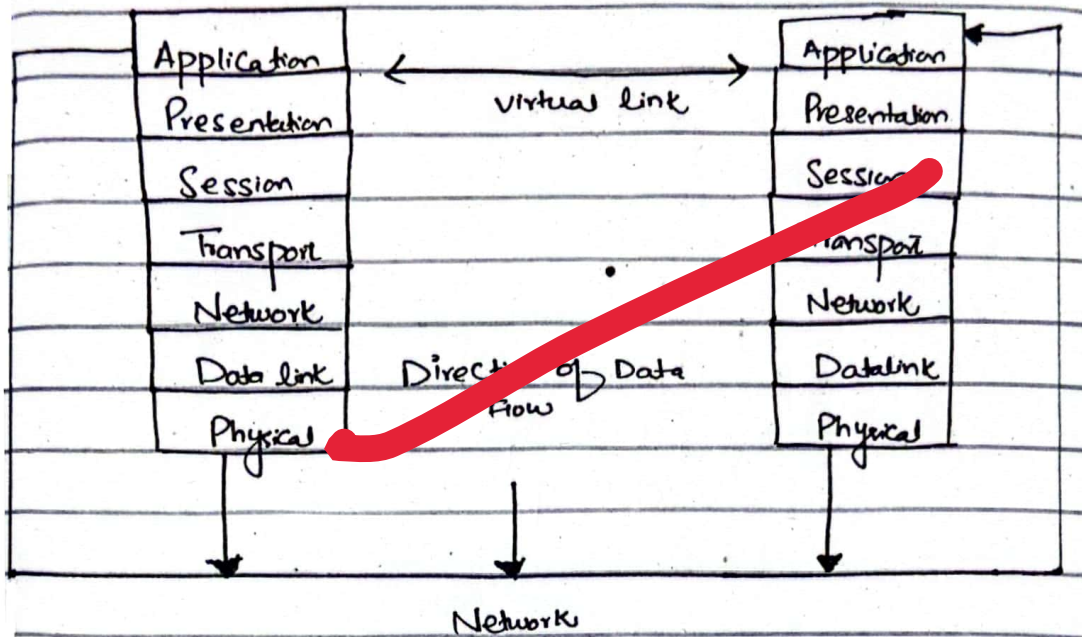 Application
Presentation
Session
Transport
Network
Data link
Physical
virtual link
of Data
Flow
Application
Presentation
Network
Datalink
Physical
Network